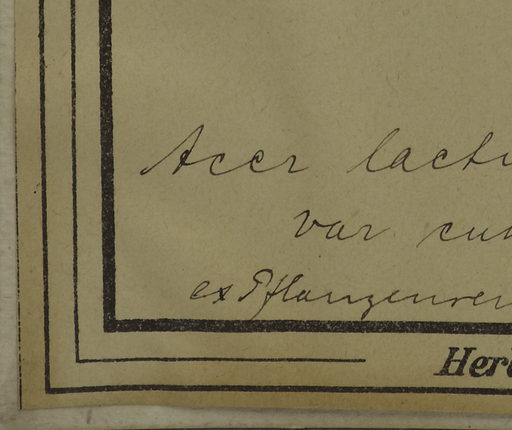 Acer lactu
var cun
ex Pflanzenver
Herb